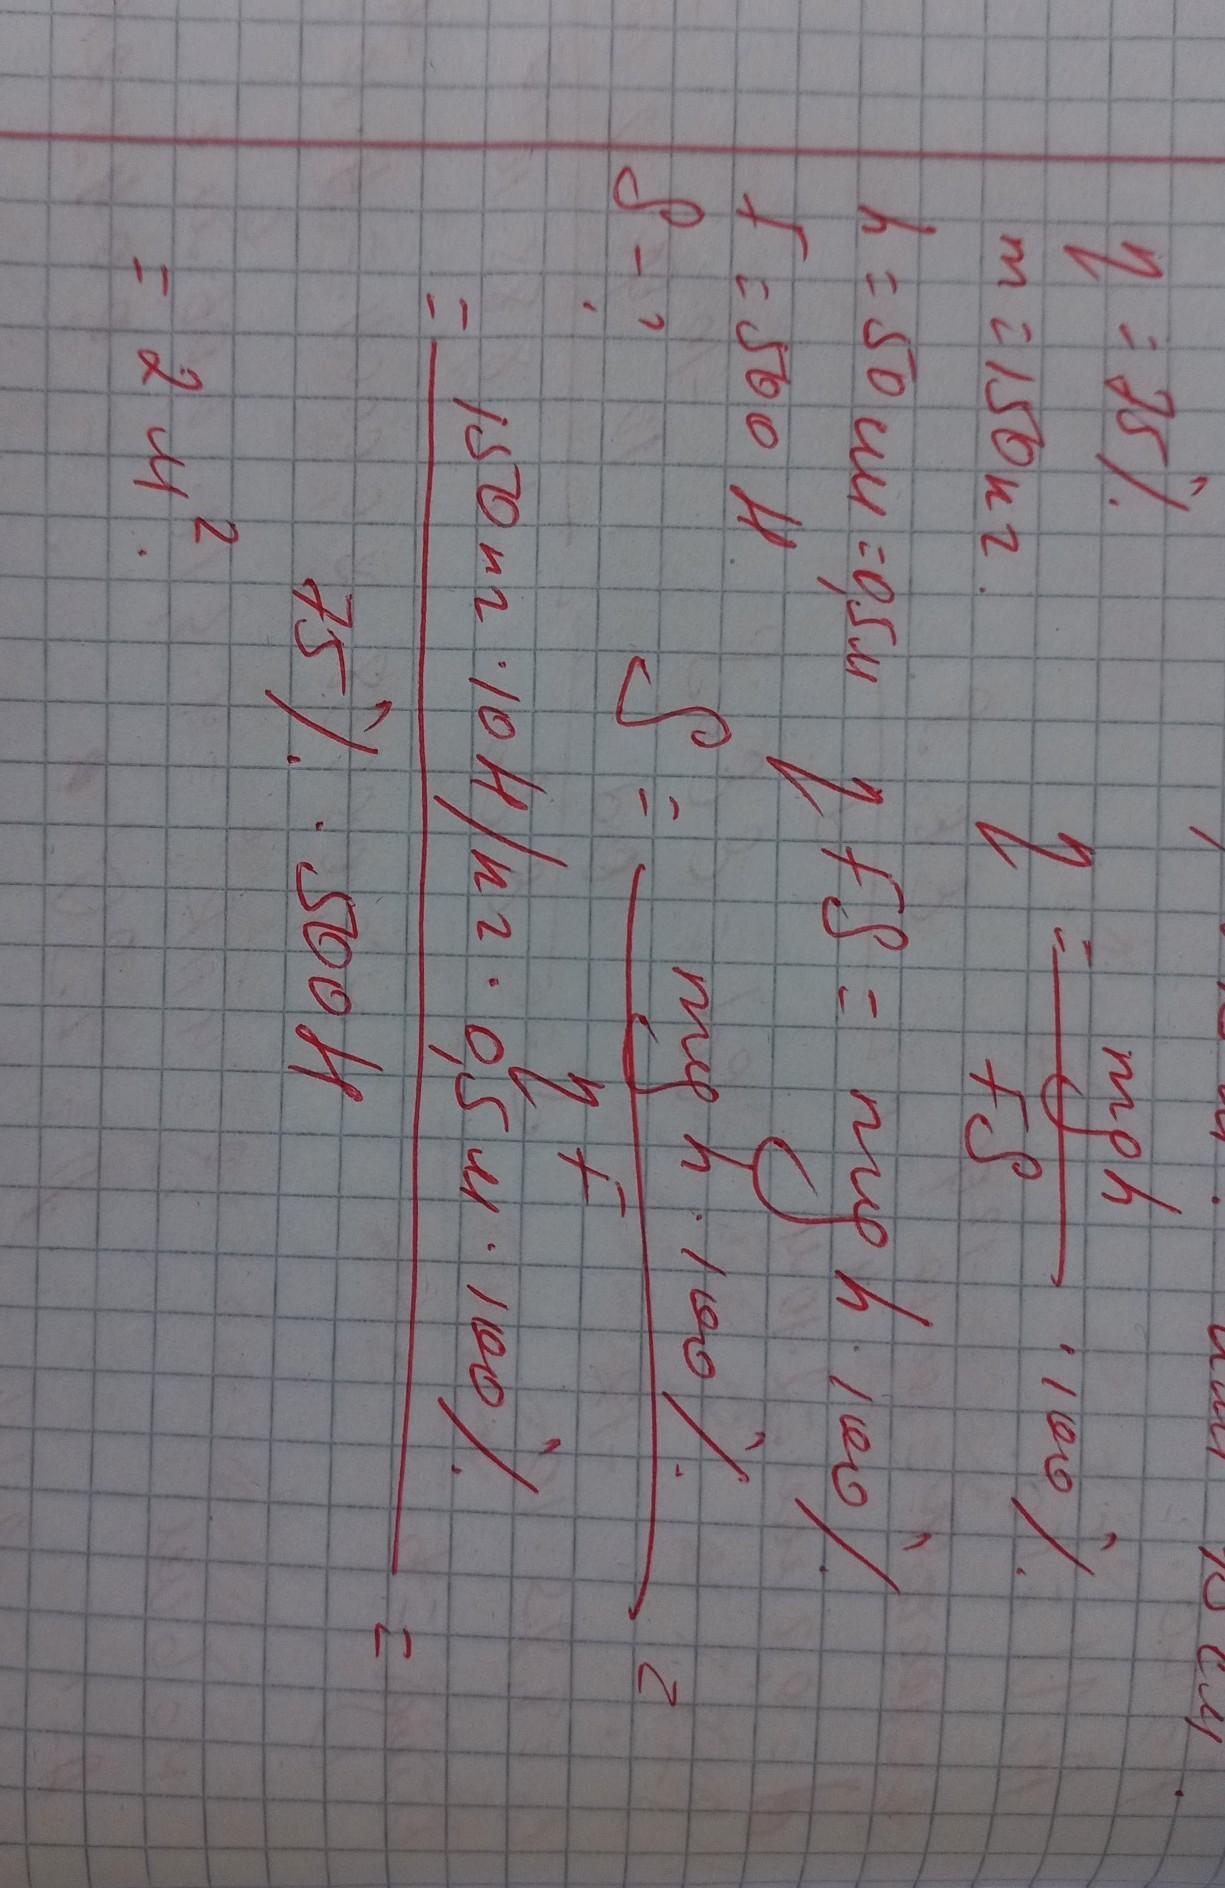 η = 75%.
m = 150 кг.
h = 50 см = 0,5 м
F = 500 Н
S - ?
η = mgh / FS · 100%.
η FS = mgh · 100%.
S = mgh · 100%. / η F =
= 150 кг · 10 Н/кг · 0,5 м · 100%. / 75%. · 500 Н =
= 2 м².